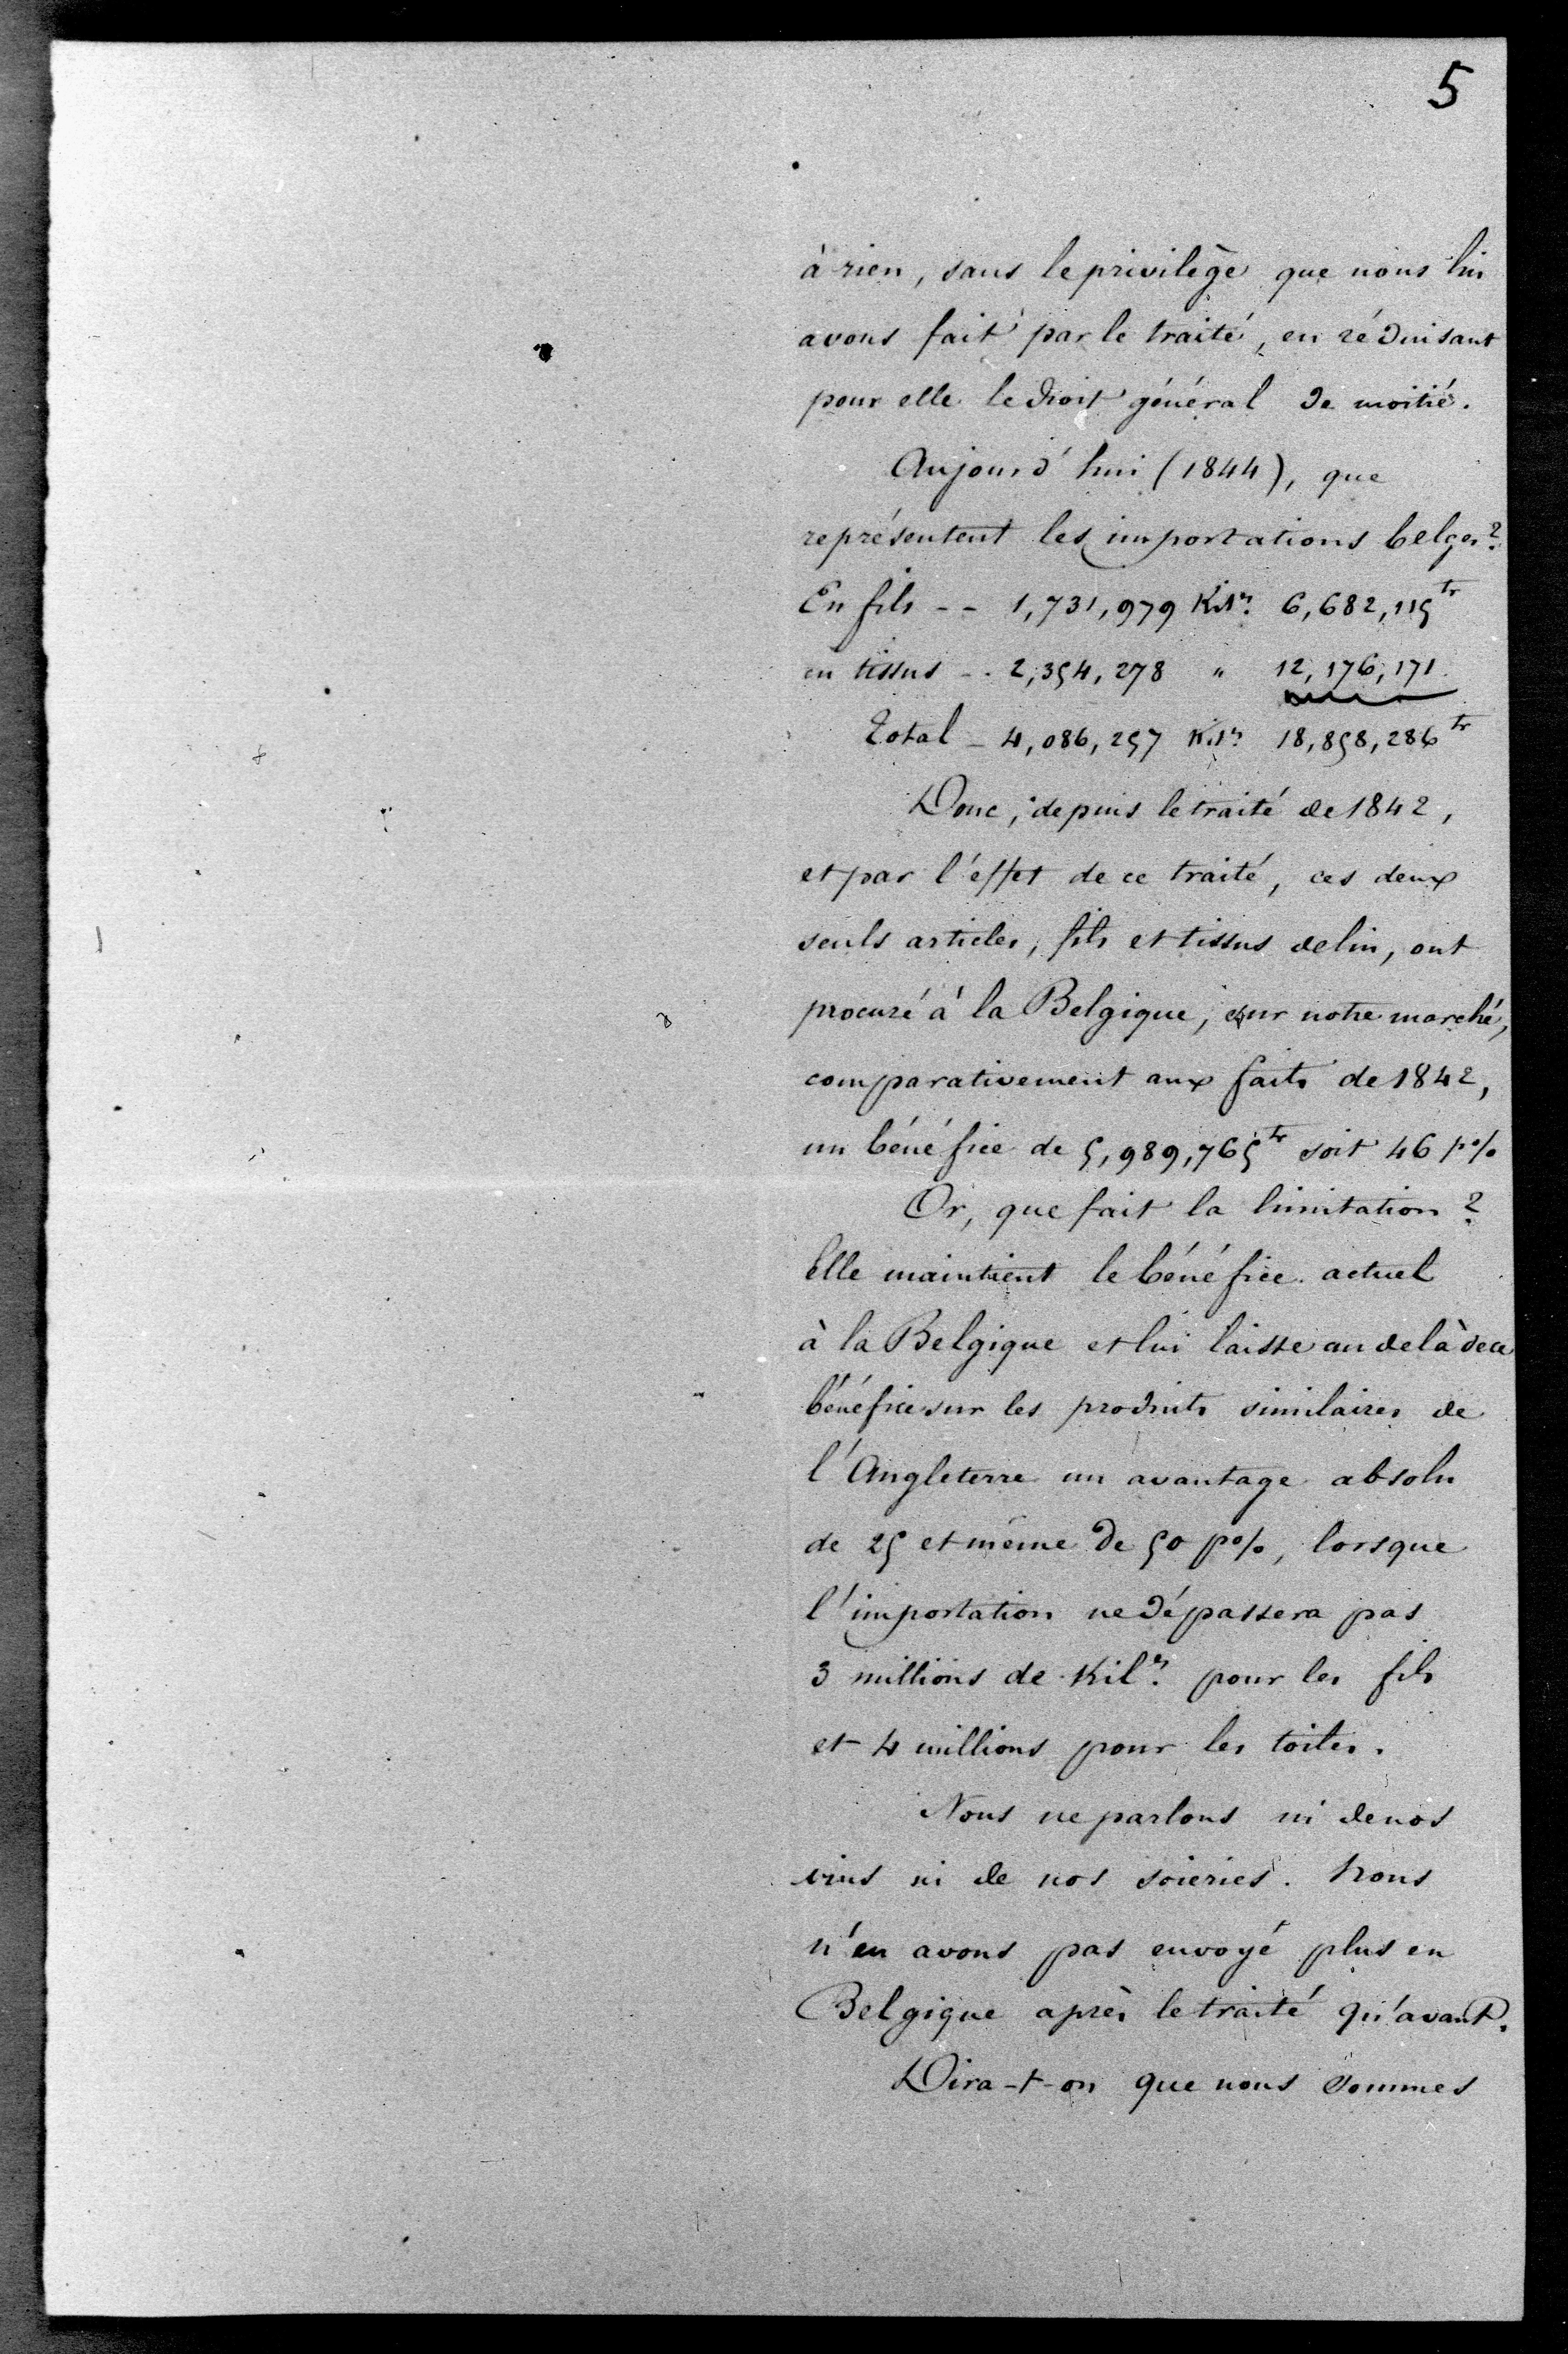 5
à rien, sans le privilège que nous lui
avons fait par le traité, en réduisant
pour elle le droit général de moitié.
Aujourd'hui (1844), que
représentent les importations belges?
En fils -- 1,731,979 Kil.s 6,682,115 fr
en tissus -- 2,354,278 " 12,176,171
Total - 4,086,257 Kil.s 18,858,286 fr
Donc, depuis le traité de 1842,
et par l'effet de ce traité, ces deux
seuls articles, fils et tissus de lin, ont
procuré à la Belgique, sur notre marché,
comparativement aux faits de 1842,
un bénéfice de 5,989,765 fr soit 46 p%
Or, que fait la limitation?
Elle maintient le bénéfice actuel
à la Belgique et lui laisse au delà de ce
bénéfice sur les produits similaires de
l'Angleterre un avantage absolu
de 25 et même de 50 p%, lorsque
l'importation ne dépassera pas
3 millions de Kil.s pour les fils
et 4 millions pour les toiles.
Nous ne parlons ni de nos
vins ni de nos soieries. Nous
n'en avons pas envoyé plus en
Belgique après le traité qu'avant.
Dira-t-on que nous sommes